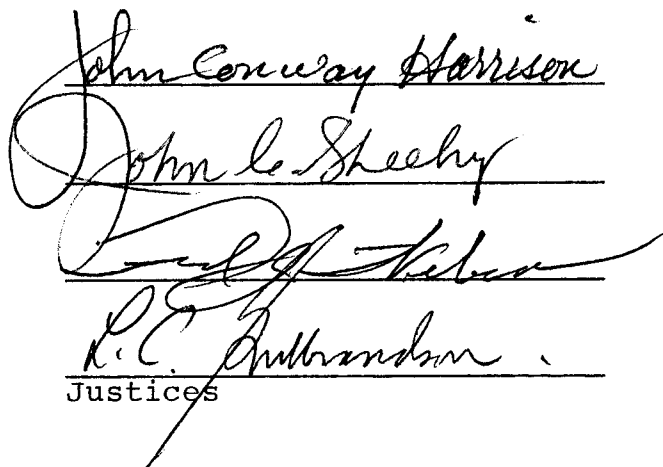 John Conway Harrison
John C. Sheehy
L. C. Gulbrandson
Justices